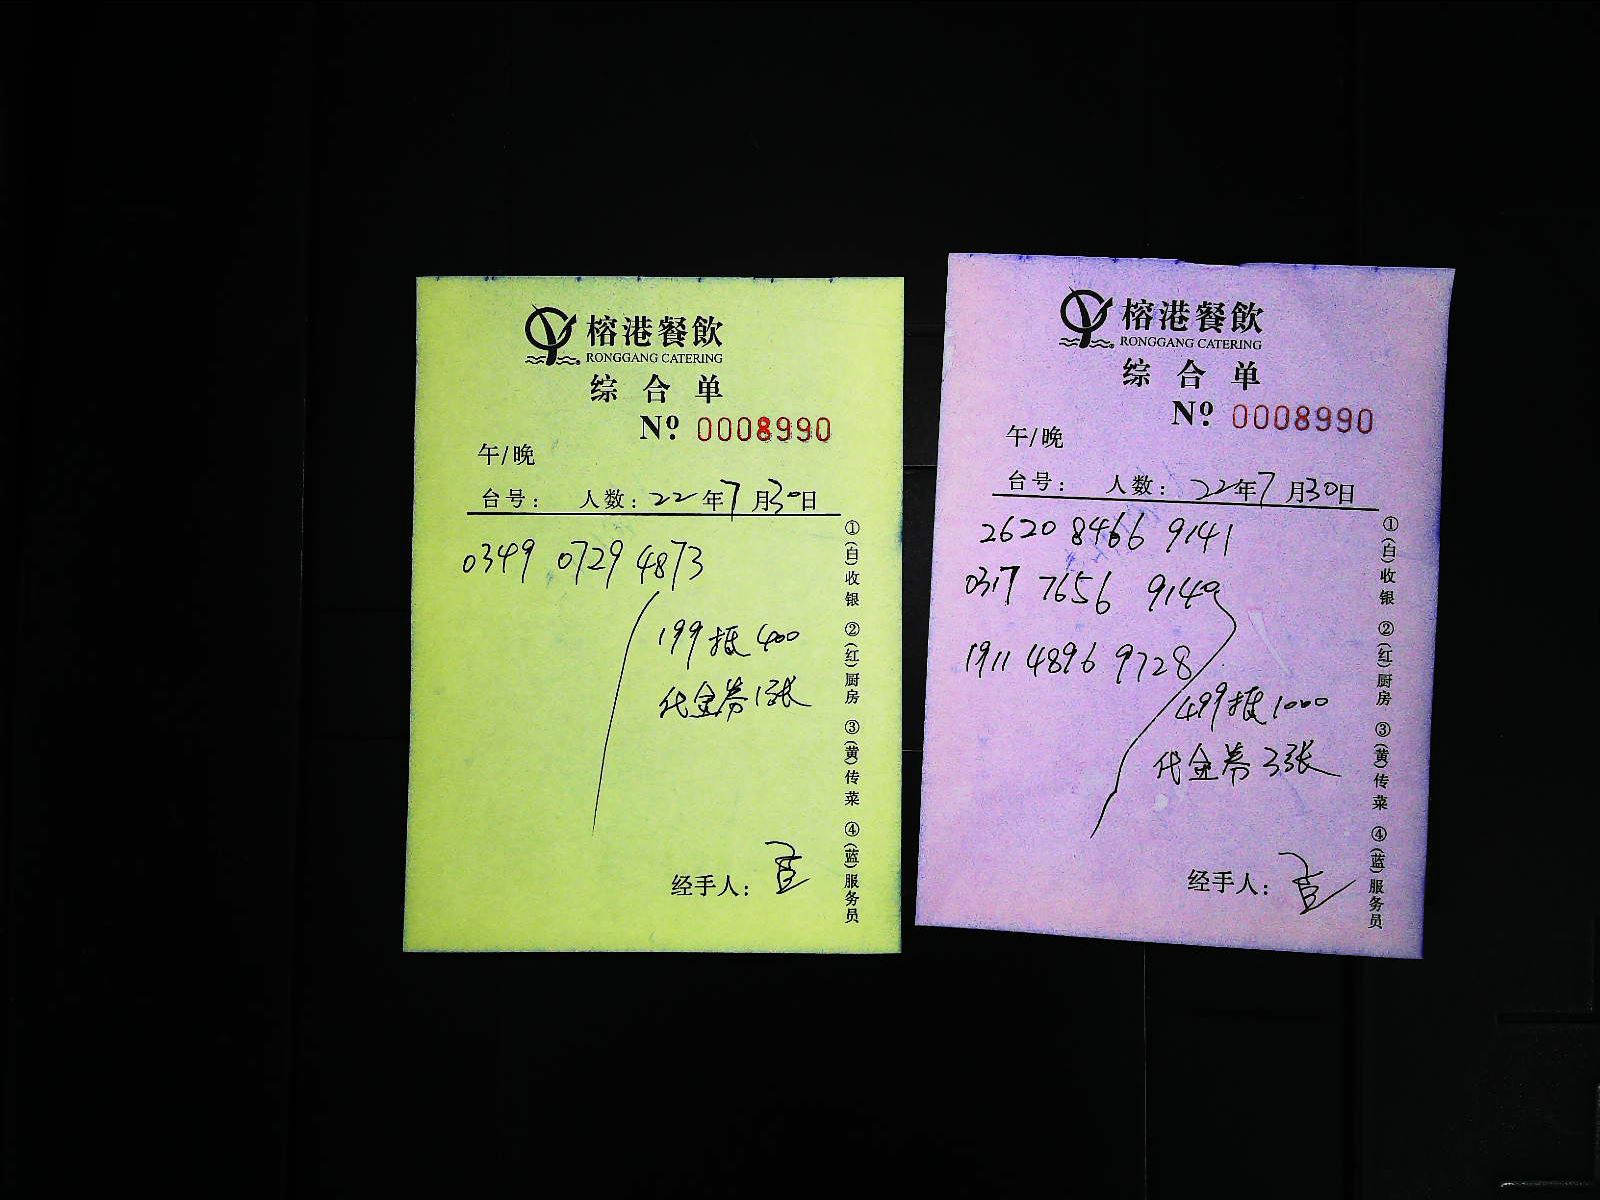 榕港餐飲
RONGGANG CATERING
综合单
Nº: 0008990
午/晚
台号: 人数: 22年7月30日
0349 0729 4873
199抵400
代金券1张
经手人:
①(白)收银 ②(红)厨房 ③(黄)传菜 ④(蓝)服务员
榕港餐飲
RONGGANG CATERING
综合单
Nº: 0008990
午/晚
台号: 人数: 22年7月30日
2620 8466 9141
0317 7656 9149
1911 4896 9728
499抵1000
代金券3张
经手人:
①(白)收银 ②(红)厨房 ③(黄)传菜 ④(蓝)服务员